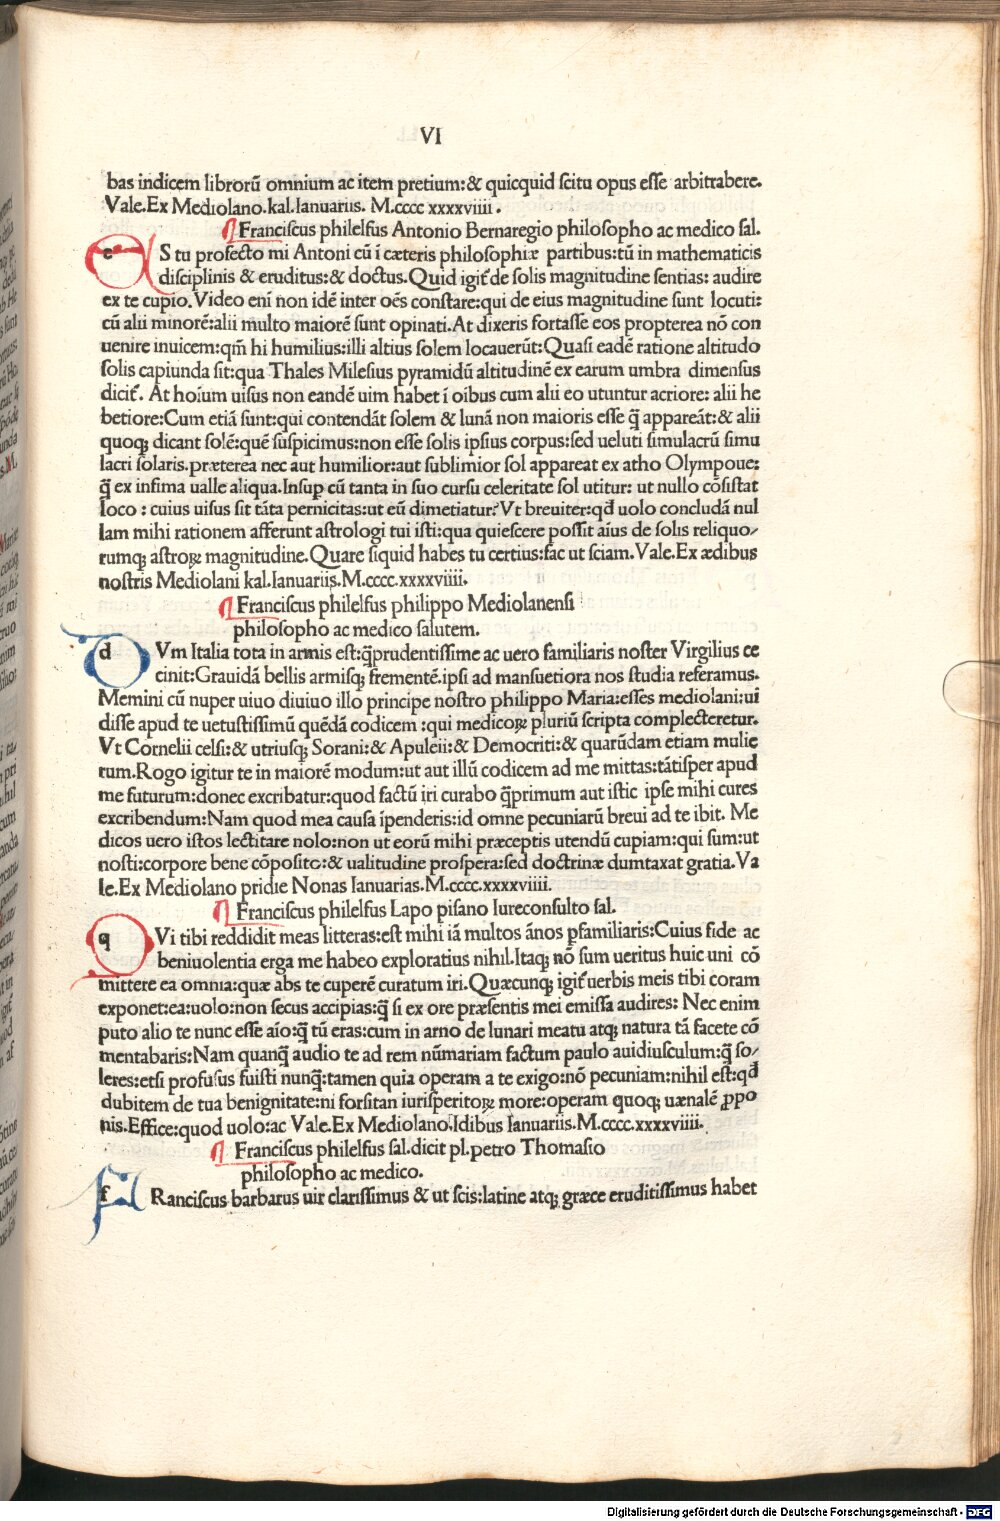 VI
bas indicem librorū omnium ac item pretium:& quicquid scitu opus esse arbitrabere.
Vale.Ex Mediolano.kal.Ianuariis. M.cccc xxxxviiii.
¶Franciscus philelfus Antonio Bernaregio philosopho ac medico sal.
eS tu profecto mi Antoni cū ī cæteris philosophiæ partibus:tū in mathematicis
disciplinis & eruditus:& doctus.Quid igit᷑ de solis magnitudine sentias: audire
ex te cupio.Video eni non idē inter oēs constare:qui de eius magnitudine sunt locuti:
cū alii minorē:alii multo maiorē sunt opinati.At dixeris fortasse eos propterea nō con
uenire inuicem:qm̄ hi humilius:illi altius solem locauerūt:Quasi eadē ratione altitudo
solis capiunda sit:qua Thales Milesius pyramidū altitudinē ex earum umbra dimensus
dicit᷑. At hoīum uisus non eandē uim habet ī oībus cum alii eo utuntur acriore: alii he
betiore:Cum etiā sunt:qui contendāt solem & lunā non maioris esse q̄ appareāt:& alii
quoqꝫ dicant solē:quē suspicimus:non esse solis ipsius corpus:sed ueluti simulacrū simu
lacri solaris.præterea nec aut humilior:aut sublimior sol appareat ex atho Olympoue:
q̄ ex infima ualle aliqua.Insuꝑ cū tanta in suo cursu celeritate sol utitur: ut nullo cōsistat
loco : cuius uisus sit tāta pernicitas:ut eū dimetiatur?Vt breuiter:qd̄ uolo concludā nul
lam mihi rationem afferunt astrologi tui isti:qua quiescere possit aīus de solis reliquo⸗
rumqꝫ astroꝝ magnitudine.Quare siquid habes tu certius:fac ut sciam.Vale.Ex ædibus
nostris Mediolani kal.Ianuariis.M.cccc.xxxxviiii.
¶Franciscus philelfus philippo Mediolanensi
philosopho ac medico salutem.
dVm Italia tota in armis est:q̄prudentissime ac uero familiaris noster Virgilius ce
cinit:Grauidā bellis armisqꝫ frementē.ipsi ad mansuetiora nos studia referamus.
Memini cū nuper uiuo diuiuo illo principe nostro philippo Maria:esses mediolani:ui
disse apud te uetustissimū quēdā codicem :qui medicoꝝ pluriū scripta complecteretur.
Vt Cornelii celsi:& utriusqꝫ Sorani:& Apuleii:& Democriti:& quarūdam etiam mulie
rum.Rogo igitur te in maiorē modum:ut aut illū codicem ad me mittas:tātisper apud
me futurum:donec excribatur:quod factū iri curabo q̄primum aut istic ipse mihi cures
excribendum:Nam quod mea causa īpenderis:id omne pecuniarū breui ad te ibit. Me
dicos uero istos lectitare nolo:non ut eorū mihi præceptis utendū cupiam:qui sum:ut
nosti:corpore bene cōposito:& ualitudine prospera:sed doctrinæ dumtaxat gratia.Va
le.Ex Mediolano pridie Nonas Ianuarias.M.cccc.xxxxviiii.
¶Franciscus philelfus Lapo pisano Iureconsulto sal.
qVi tibi reddidit meas litteras:est mihi iā multos ānos ꝑfamiliaris:Cuius fide ac
beniuolentia erga me habeo exploratius nihil.Itaqꝫ nō sum ueritus huic uni cō
mittere ea omnia:quæ abs te cuperē curatum iri.Quæcunqꝫ igit᷑ uerbis meis tibi coram
exponet:ea:uolo:non secus accipias:q̄ si ex ore præsentis mei emissa audires: Nec enim
puto alio te nunc esse aīo:q̄ tū eras:cum in arno de lunari meatu atqꝫ natura tā facete cō
mentabaris:Nam quanq̄ audio te ad rem nūmariam factum paulo auidiusculum:q̄ so⸗
leres:etsi profusus fuisti nunq̄:tamen quia operam a te exigo:nō pecuniam:nihil est:qd̄
dubitem de tua benignitate:ni forsitan iurisperitoꝝ more:operam quoqꝫ uænalē ꝓpo
nis.Effice:quod uolo:ac Vale.Ex Mediolano.Idibus Ianuariis.M.cccc.xxxxviiii.
¶Franciscus philelfus sal.dicit pl.petro Thomasio
philosopho ac medico.
fRanciscus barbarus uir clarissimus & ut scis:latine atqꝫ græce eruditissimus habet
Digitalisierung gefördert durch die Deutsche Forschungsgemeinschaft - DFG